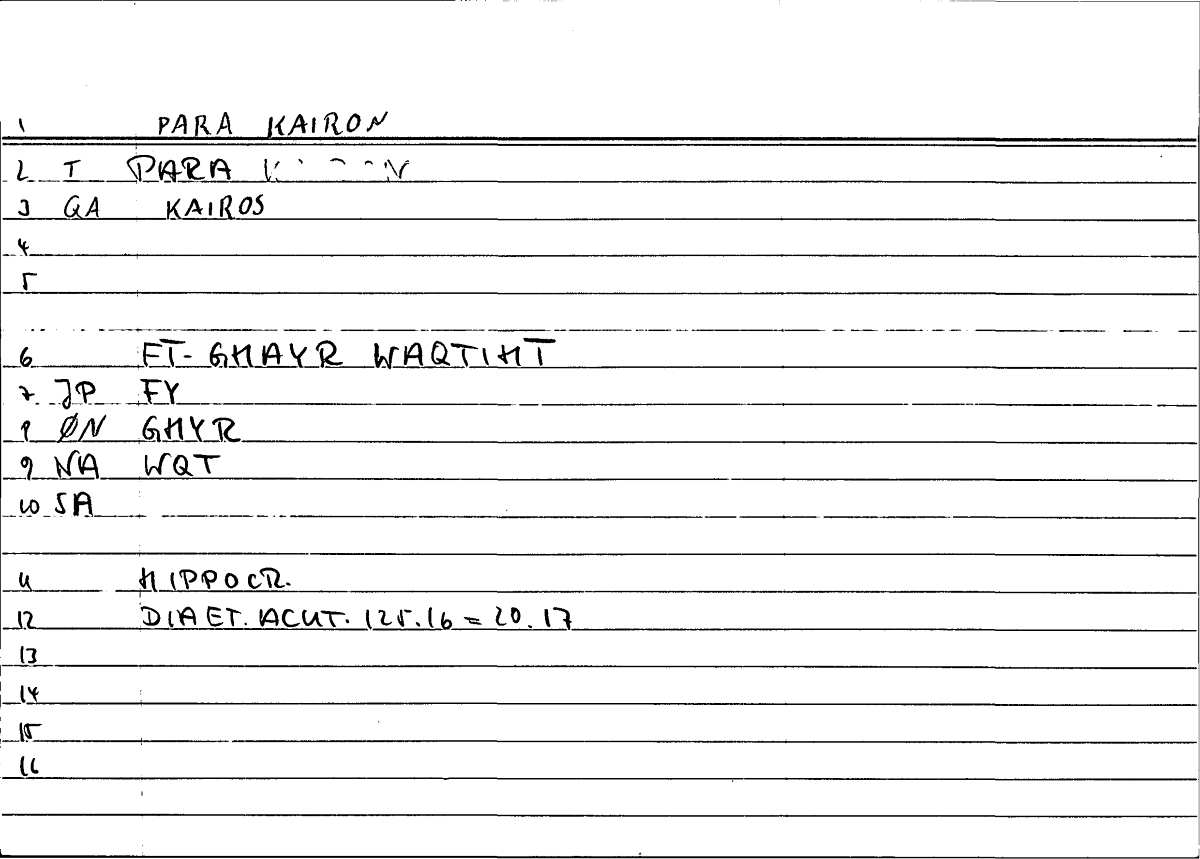 1 PARA KAIRON
2 T PARA
3 QA KAIROS
4
5
6 FT- GHAYR WAQTIHT
7 JP FY
8 ØN GHYR
9 NA WQT
10 SA
11 HIPPOCR.
12 DIAET. ACUT. 125.16 = 20.17
13
14
15
16